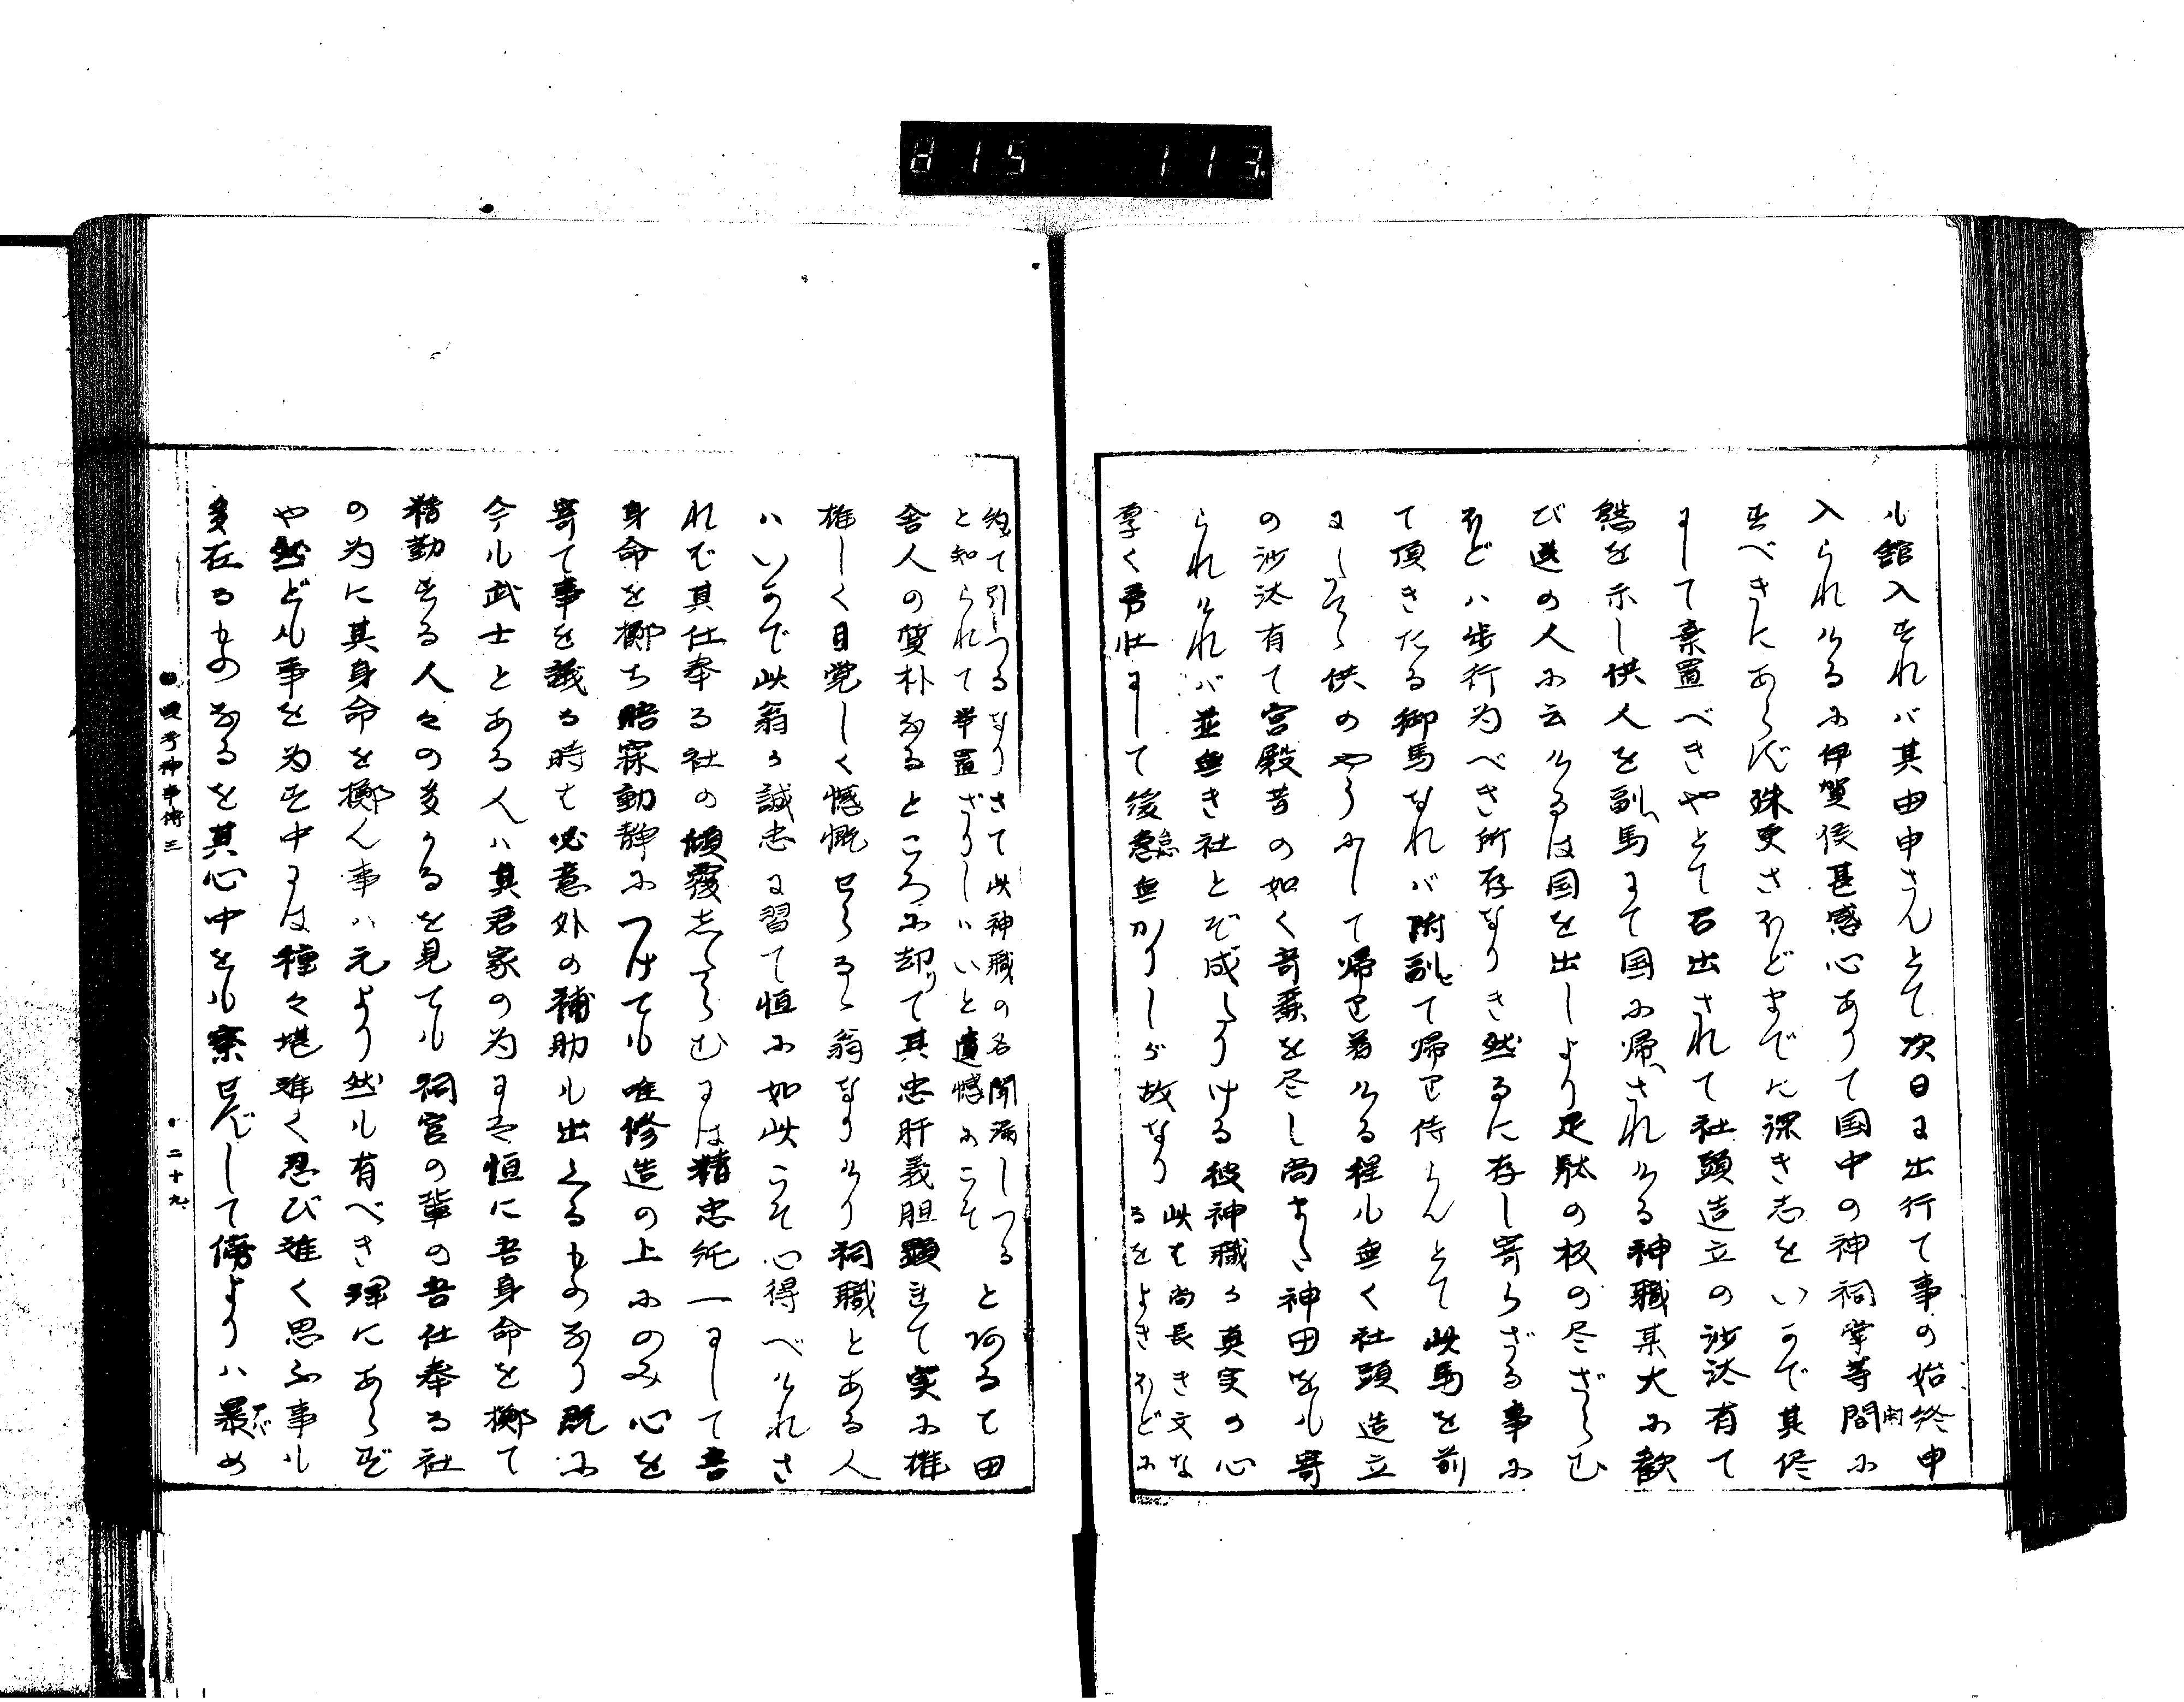 815 113
ル館入すれバ其由申さんとて次日に出行て事の始終申
入られけるに伊賀侯甚感心ありて国中の神祠掌等問に
すべきにあらず殊更さほどまでに深き志をいかで其侭
にして棄置べきやとて召出されて社頭造立の沙汰有て
を示し供人を副馬にて国に帰されける神職某大に歓
び送の人に云けるは国を出しより足駄の板の尽ざらむ
ほどハ歩行為べき所存なりき然るに存し寄らざる事に
て頂きたる御馬なれバ附副て帰り侍らんとて此馬を前
にし供のやうにして帰り着ける程ル無く社頭造立
の沙汰有て宮殿昔の如く奇麗を尽し尚また神田をル寄
られけれバ並無き社とぞ成たりける彼神職か真実の心
厚く勇壮にして後急無かりしが故なり
此も尚長き文な
るをよきほどに
約て引つるなりさて此神職の名聞漏しつる
と知られて挙置ざりしハいと遺憾にこそ
とあるも田
舎人の質朴なるところに却て其忠肝義胆顕れて実に雄
雄しく目覚しく憾慨せらるゝ翁なりけり祠職とある人
ハいかで此翁か誠忠に習て恒に如此こそ心得べけれさ
れば其仕奉る社の傾覆したらむには精忠純一にして吾
身命を擲ち臨寐動静につけてル唯修造の上にのみ心を
寄て事を議る時も必意外の補助ル出くるものなり既に
今ル武士とある人ハ其君家の為には恒に吾身命を擲て
精勤する人々の多かるを見てル祠官の輩の吾仕奉る社
の為に其身命を擲ん事ハ元より然ル有べき理にあらず
や然どル事を為す中には種々堪難く忍び難く思ふ事ル
多在るものなるを其心中をル察せずして傍よりハ最め
神事傳三
二十九